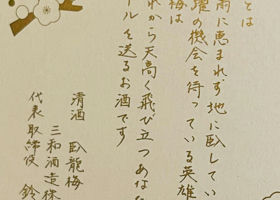 とは
雨に恵まれず地に臥してい
躍の機会を待っている英雄
梅は
れから天高く飛び立つあなた
ールを送るお酒です
清酒 臥龍梅
三和酒造株
代表取締役 鈴